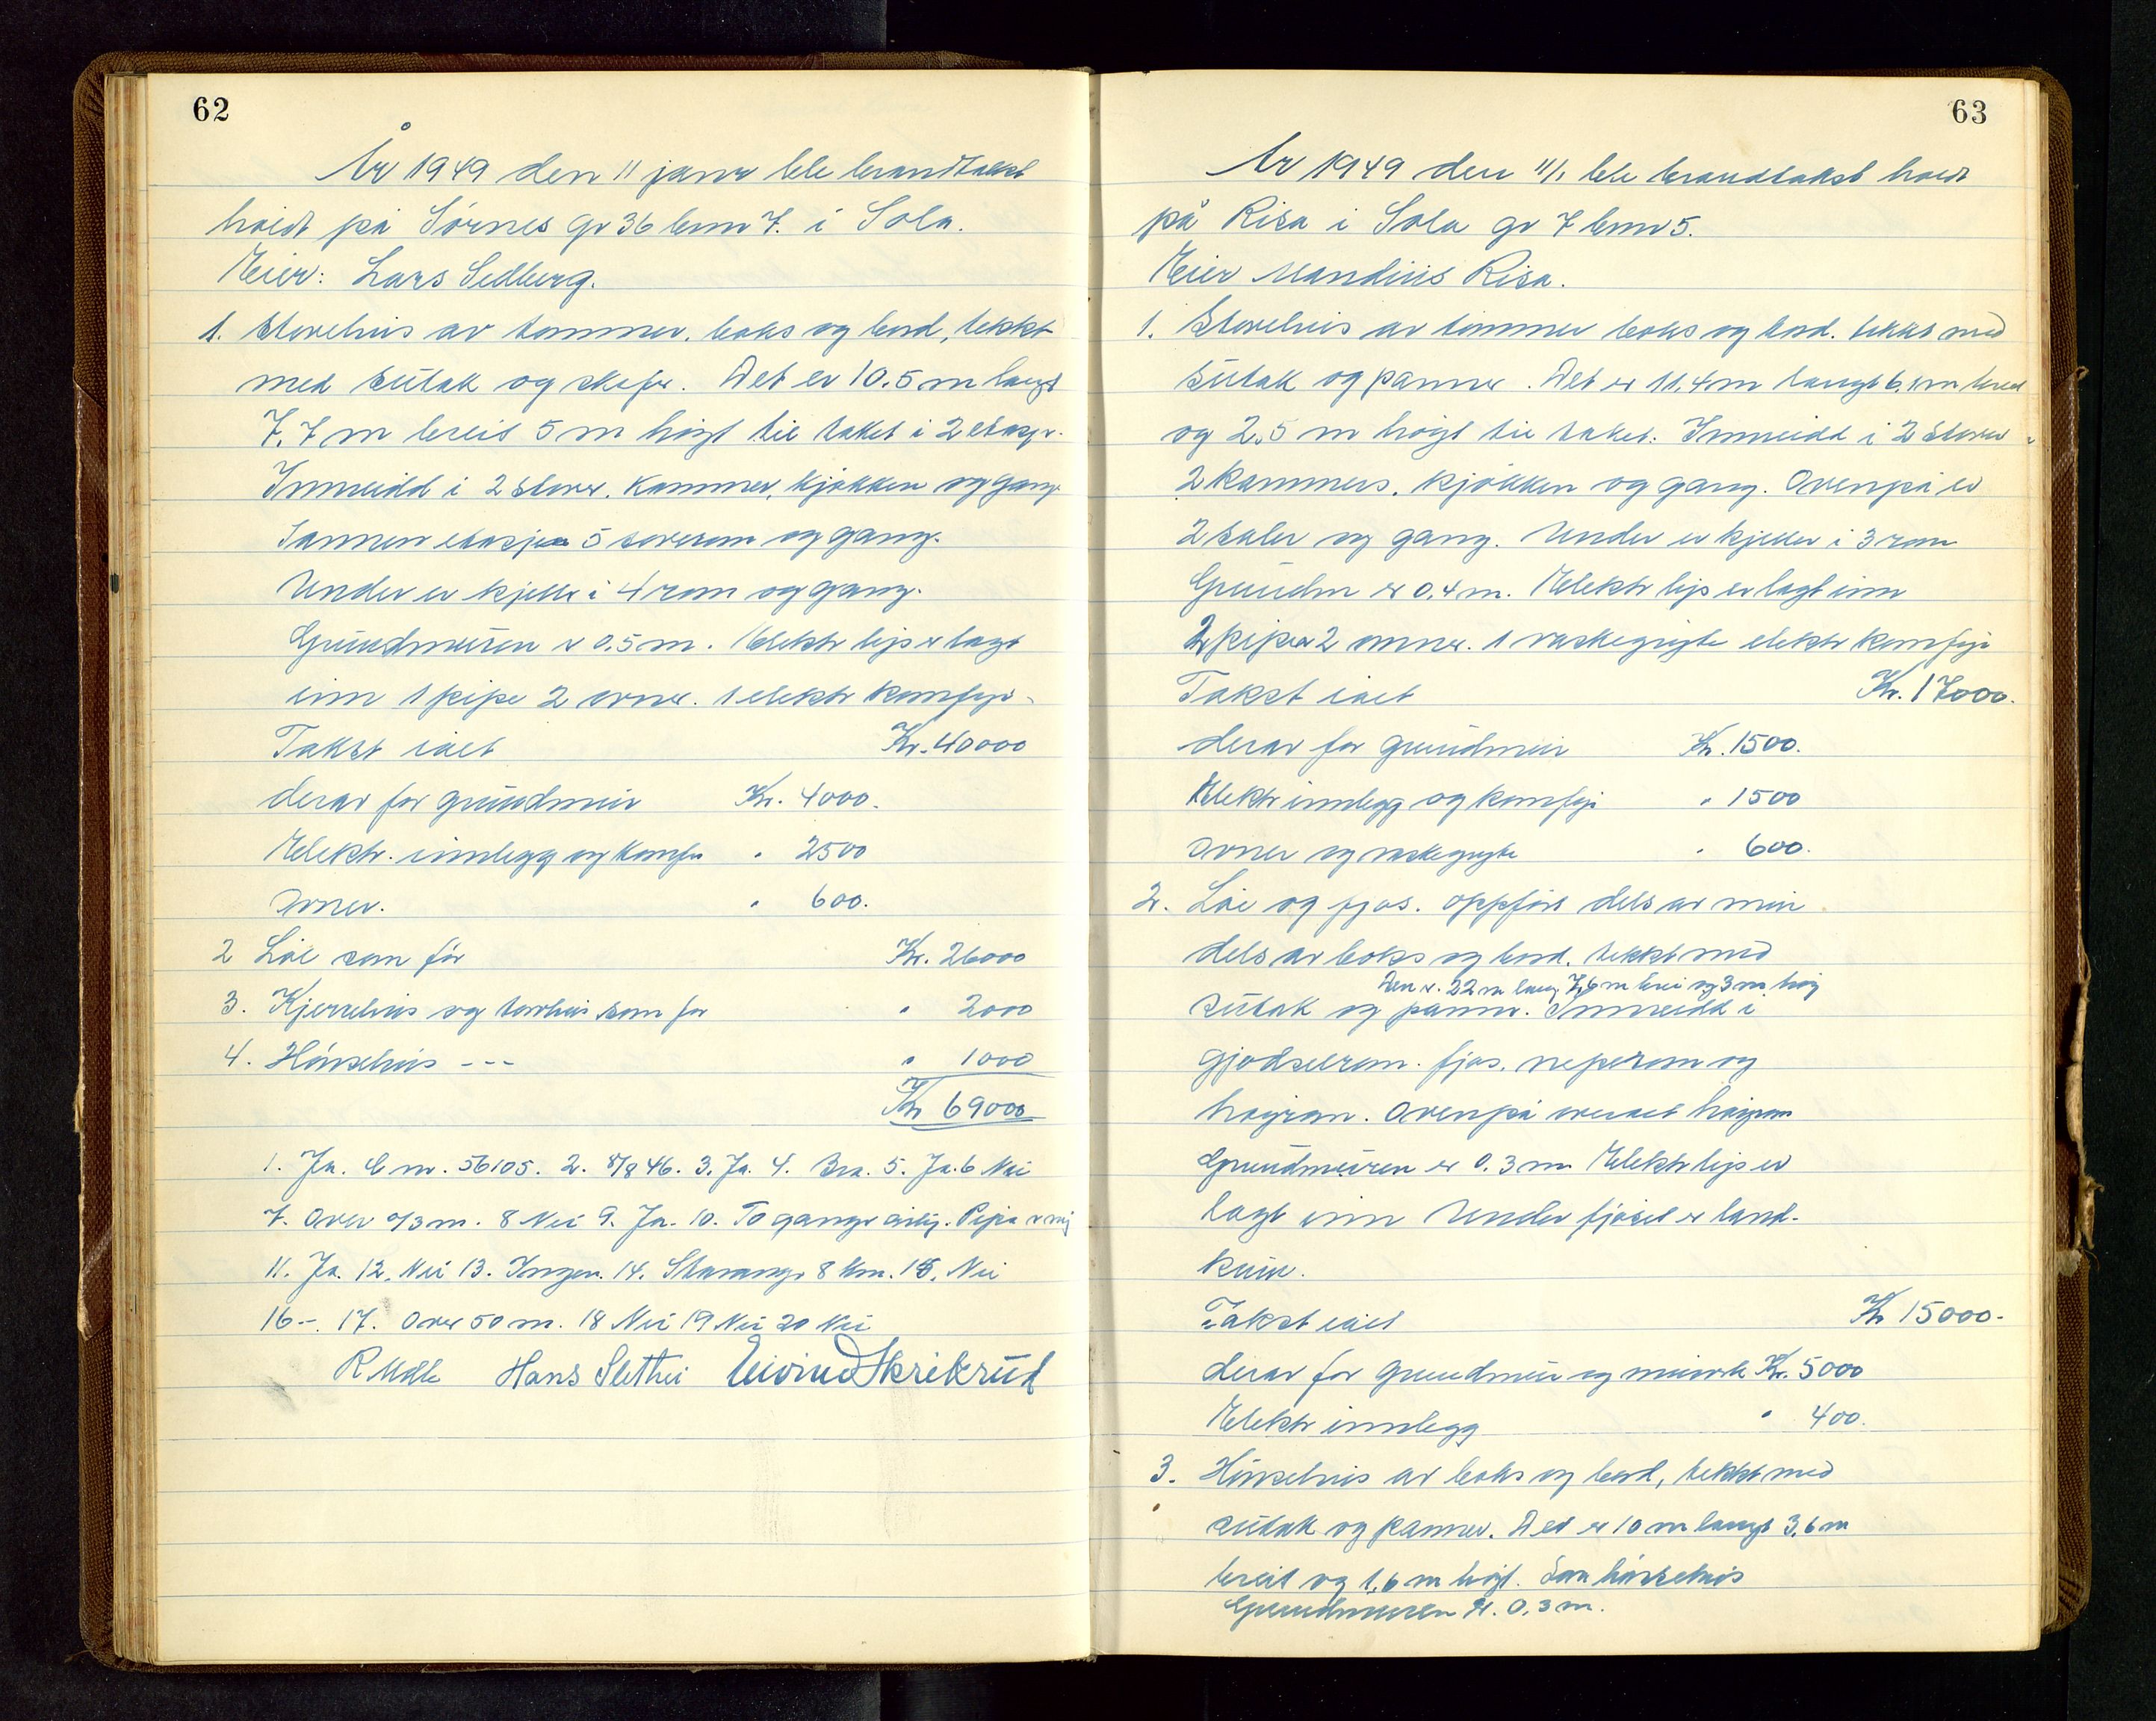 62
År 1949 den 11 janr ble branntakst
holdt på Sørnes gr 36 brnr 7. i Sola.
Eier: Lars Sedberg.
1. Stovehus av tømmer, boks og bord, tekkt
med sutak og skifer. Det er 10.5 m langt
7.7 m breit 5 m høgt til taket i 2 etasjr.
Innreidd i 2 stover, kammer, kjøkken og gang
I annen etasje 5 soverom og gang.
Under er kjeller i 4 rom og gang.
Grundmuren er 0.5 m. Elektr lys er lagt
inn 1 pipe 2 ovner. 1 elektr komfyr.
Takst ialt Kr. 40000
derav for grundmur Kr. 4000.
Elektr. innlegg og komfyr " 2500
Ovner. " 600.
2 Løe som før Kr. 26000
3. Kjerrehus og torvhus som før " 2000
4. Hønsehus --- " 1000
Kr 69000
1. Ja. C nr. 56105. 2. 8/8 46. 3. Ja. 4. Bra. 5. Ja. 6 Nei
7. Over 0/3 m. 8 Nei 9. Ja. 10. To ganger årlig. Pipa er ny
11. Ja. 12. Nei 13. Ingen. 14. Stavanger 8 km. 15. Nei
16 -. 17. Over 50 m. 18 Nei 19 Nei 20 Nei
Hans Slettei Eivind Skrikrud
63
År 1949 den 11/1 ble brandtakst holdt
på Risa i Sola gr 7 brnr 5.
Eier Mandius Risa.
1. Stovehus av tømmer boks og bord. tekkt med
sutak og panner. Det er 11,4 m langt 6,1 m breid
og 2,5 m høgt til taket. Innreidd i 2 stover
2 kammers, kjøkken og gang. Ovenpå er
2 saler og gang. Under er kjeller i 3 rom
Grundm er 0.4 m. Elektr lys er lagt inn
2 piper 2 ovner. 1 vaskegryte elektr komfyr
Takst ialt Kr. 17000.
derav for grundmur Kr. 1500.
Elektr innlegg og komfyr " 1500
Ovner og vaskegryte " 600.
2. Løe og fjøs. oppført dels av mur
dels av boks og bord. tekkt med
Den er 22 m lang 7,6 m brei og 3 m høg
sutak og panner. Innreidd i
gjødselrom. fjøs, neperom og
høyrom. Ovenpå overalt høyrom
Grundmuren er 0.3 m Elektr lys er
lagt inn Under fjøset er land-
kum.
Takst ialt Kr 15000.
derav for grundmur og murverk Kr. 5000
Elektr innlegg " 400.
3. Hønsehus av boks og bord, tekkt med
sutak og panner. Det er 10 m langt 3,6 m
breit og 1,6 m høgt. Som hønsehus
Grundmuren er. 0.3 m.